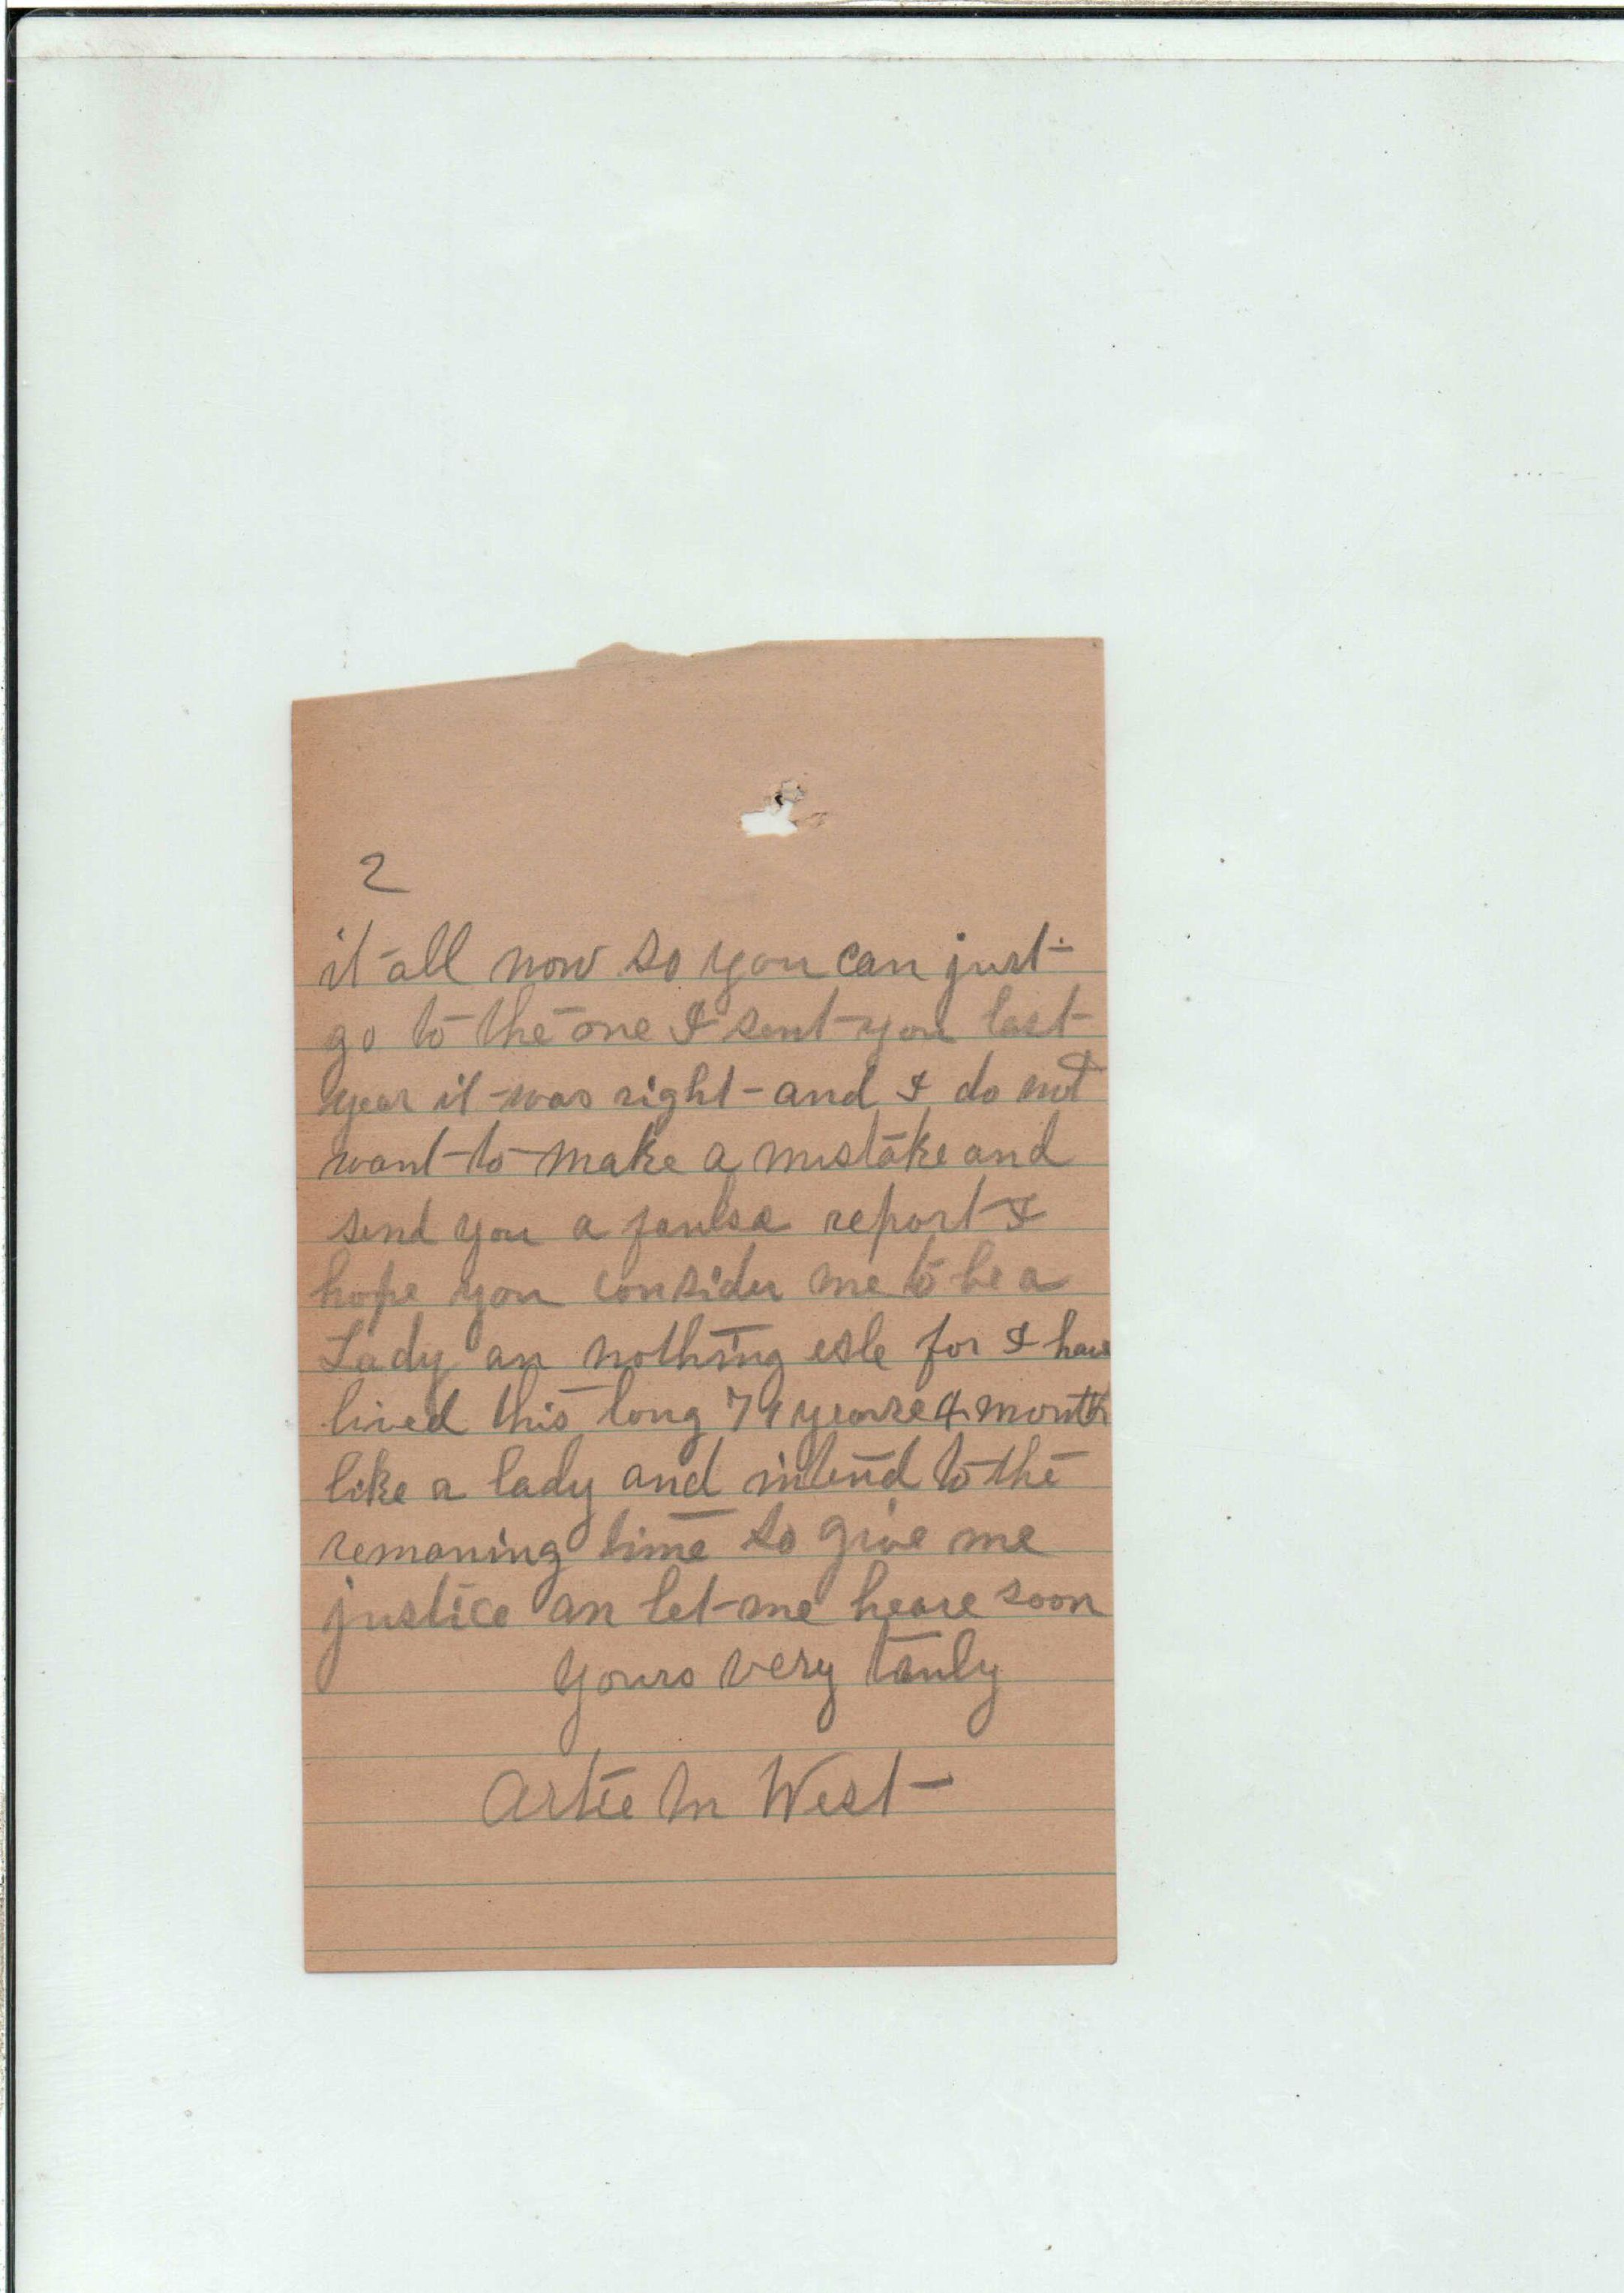 2
it all now so you can just
go to the one I sent you last
year it was right - and I do not
want to make a mistake and
send you a faulse report I
hope you consider me to be a
Lady an nothing esle for I have
lived this long 71 yeare 4 month
like a lady and intend to the
remaning time so give me
justice an let me heare soon
yours very truly
Artie M West